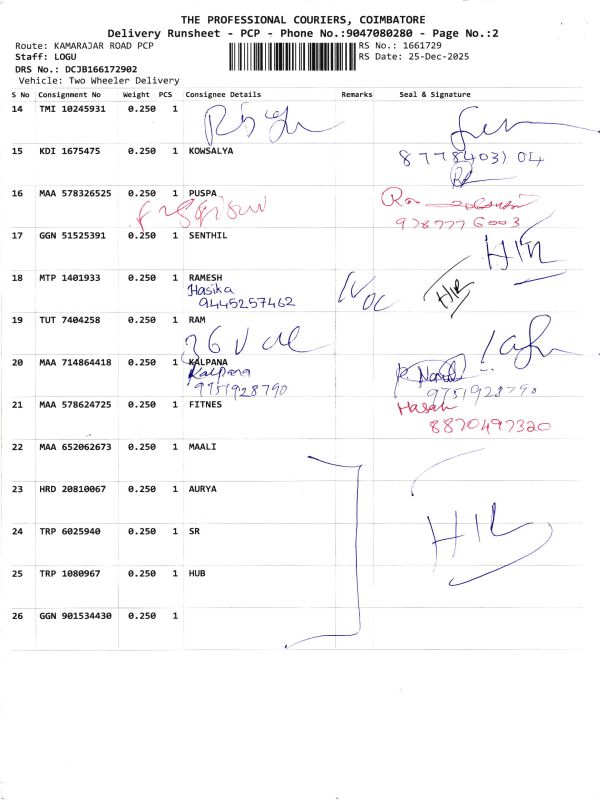 THE PROFESSIONAL COURIERS, COIMBATORE
Delivery Runsheet - PCP - Phone No.:9047080280 - Page No.:2
Route: KAMARAJAR ROAD PCP
RS No.: 1661729
Staff: LOGU
RS Date: 25-Dec-2025
DRS No.: DCJB166172902
Vehicle: Two Wheeler Delivery
S No Consignment No Weight PCS Consignee Details Remarks Seal & Signature
14 TMI 10245931 0.250 1
15 KDI 1675475 0.250 1 KOWSALYA 8778403104
16 MAA 578326525 0.250 1 PUSPA
9787776003
17 GGN 51525391 0.250 1 SENTHIL
18 MTP 1401933 0.250 1 RAMESH
Hasika
9445257462
19 TUT 7404258 0.250 1 RAM
20 MAA 714864418 0.250 1 KALPANA
Kalpana
9751928790 9751928790
21 MAA 578624725 0.250 1 FITNES Hasan
8870497320
22 MAA 652062673 0.250 1 MAALI
23 HRD 20810067 0.250 1 AURYA
24 TRP 6025940 0.250 1 SR
25 TRP 1080967 0.250 1 HUB
26 GGN 901534430 0.250 1